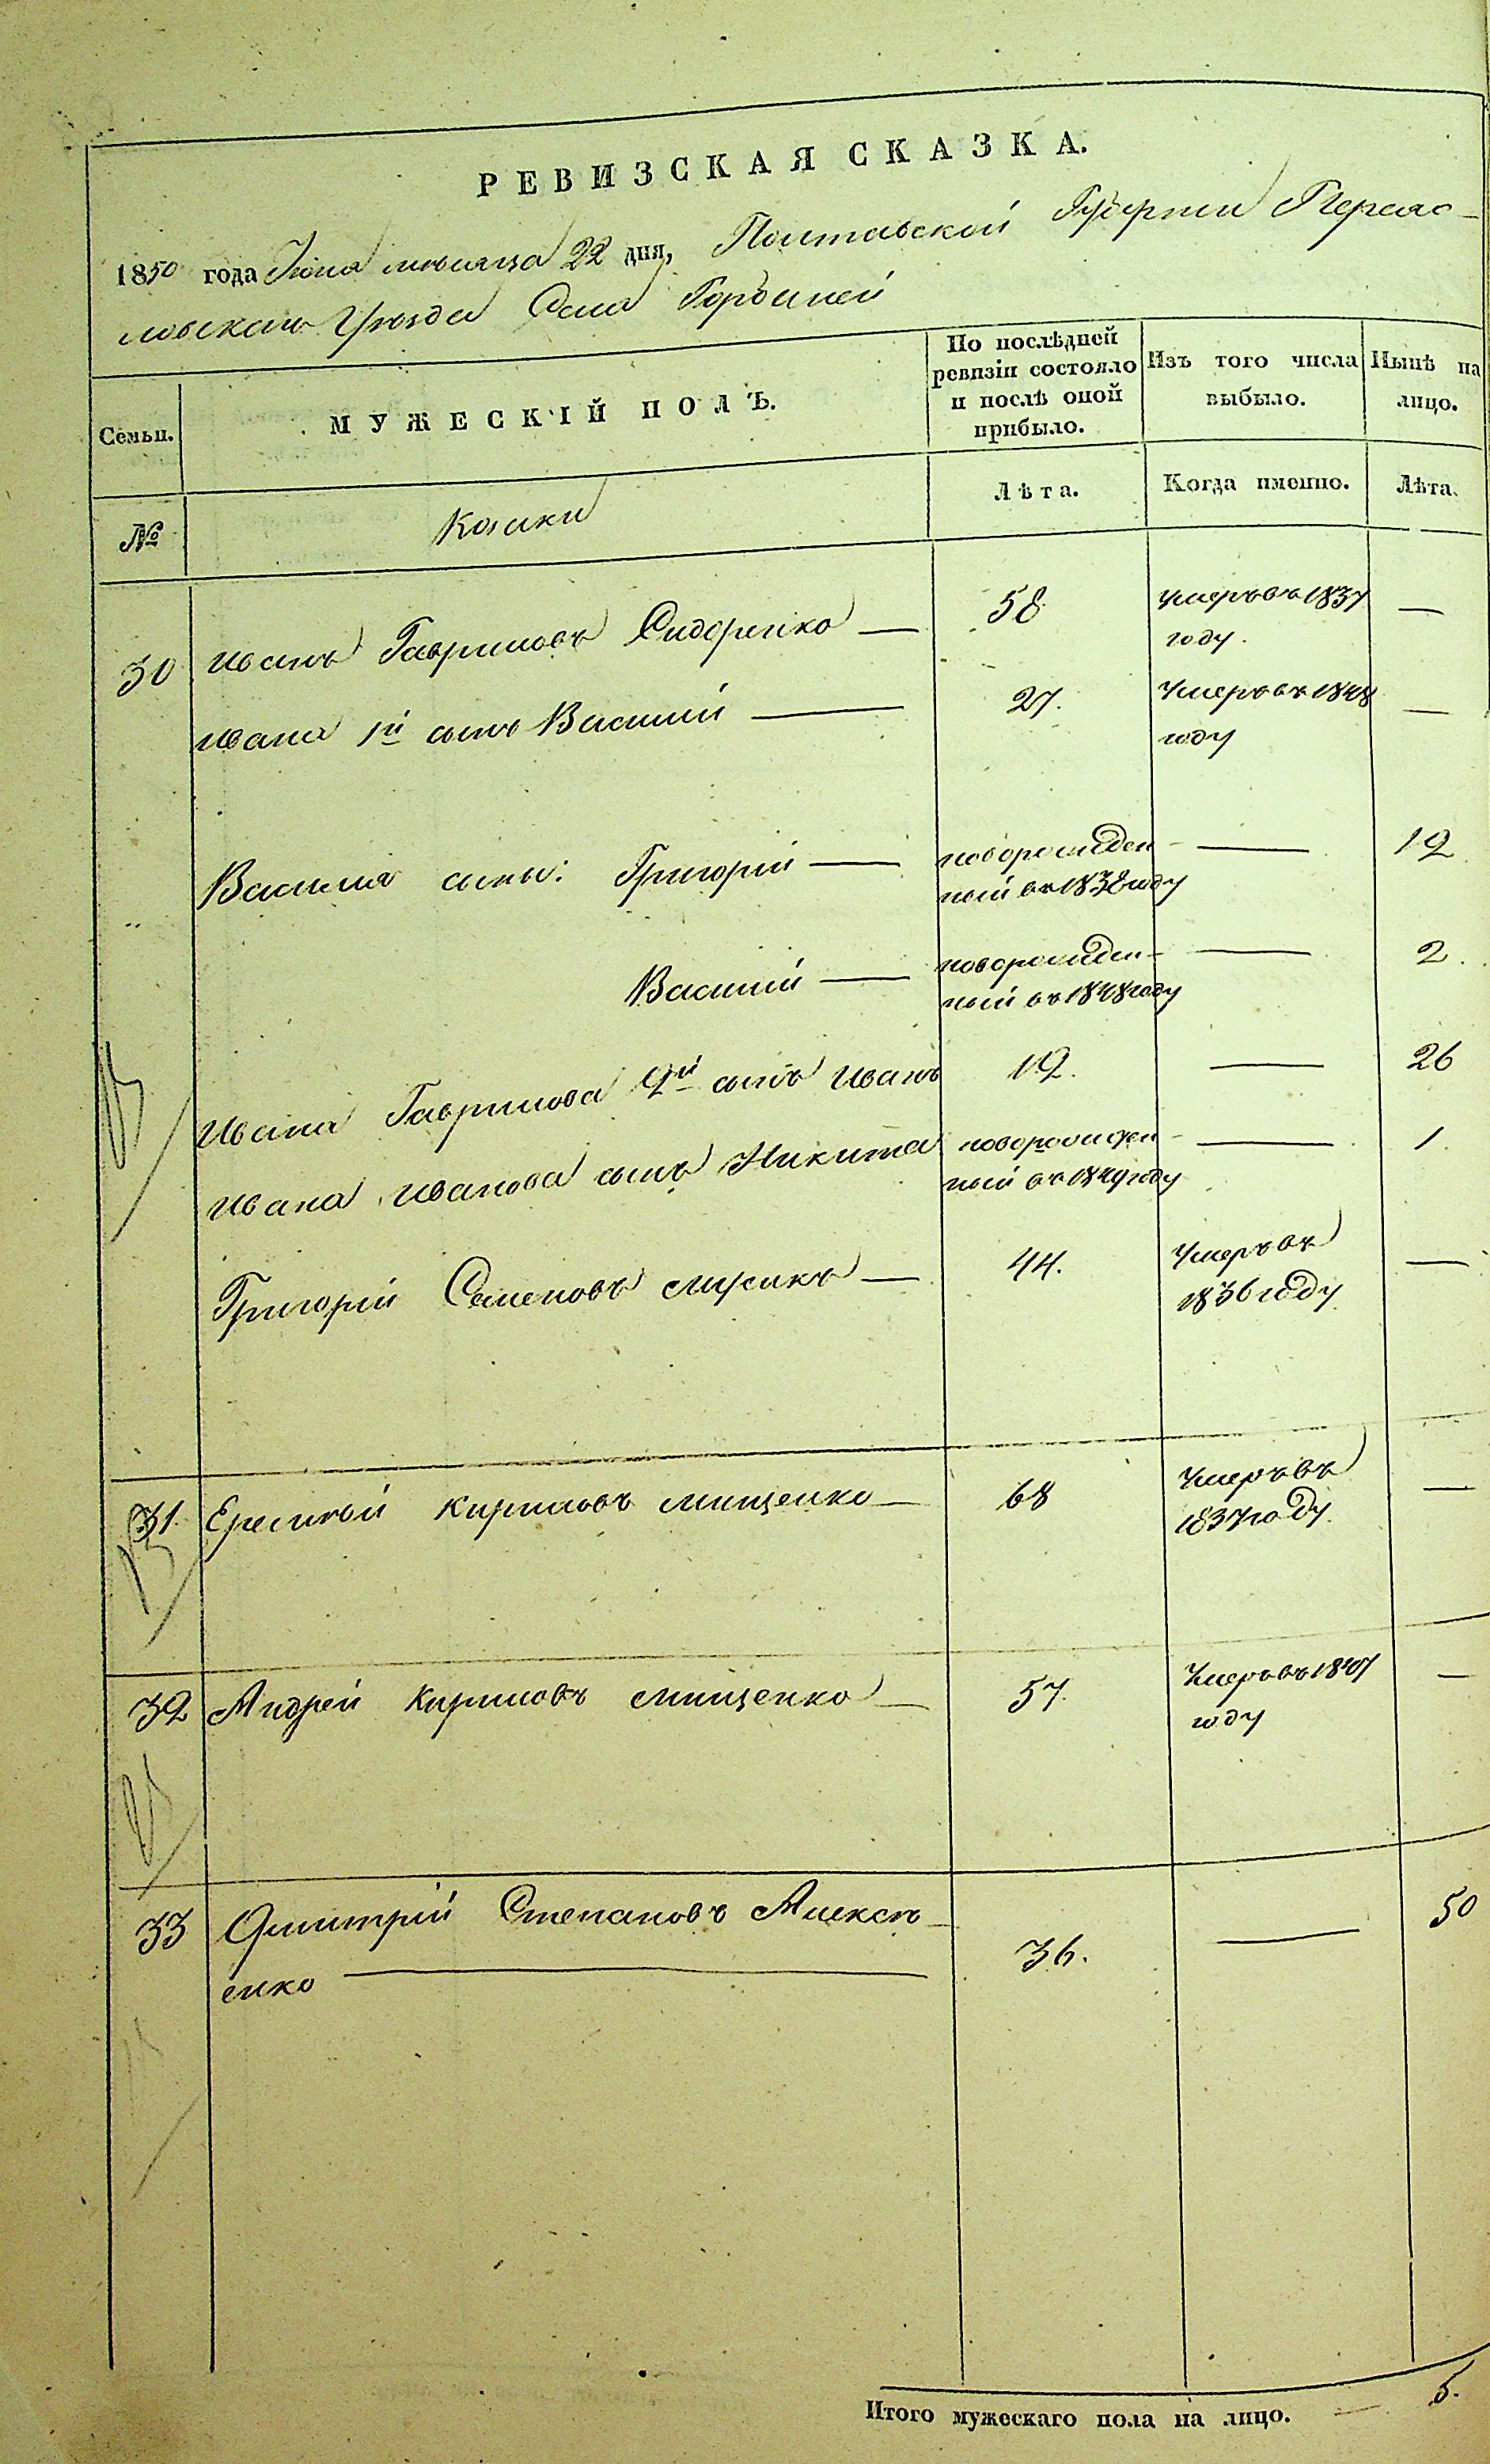 РЕВИЗСКАЯ СКАЗКА.
1850 года Июня мѣсяца 22 дня, Полтавской Губерніи Переяс-
ловскаго Уѣзда Села
Семьи.
МУЖЕСКІЙ ПОЛЪ.
По послѣдней ревизіи состояло и послѣ оной прибыло.
Изъ того числа выбыло.
Нынѣ на лицо.
№
Козаки
Лѣта.
Когда именно.
Лѣта.
30 Иванъ Гавриловъ Сидоренко — 58 умеръ въ 1837 году. —
Ивана 1й сынъ Василий — 27. Умеръ въ 1848 году —
Василия сыны: Григорій — новорожден-ный въ 1838 году — 12
Василий — новорожден-ный въ 1848 году — 2.
Ивана Гаврилова 2й сынъ Иванъ 12. — 26
Ивана Иванова сынъ Никита новорожден-ный въ 1849 году — 1.
Григорій Семеновъ — 44. Умеръ въ 1836 году —
31. Еремѣй Кириловъ Мищенко — 68 Умеръ въ 1837 году. —
32 Андрей Кириловъ Мищенко — 57. Умеръ въ году —
33 Дмитрій Степановъ Алексѣ-
енко — 36. — 50
Итого мужескаго пола на лицо. — 5.